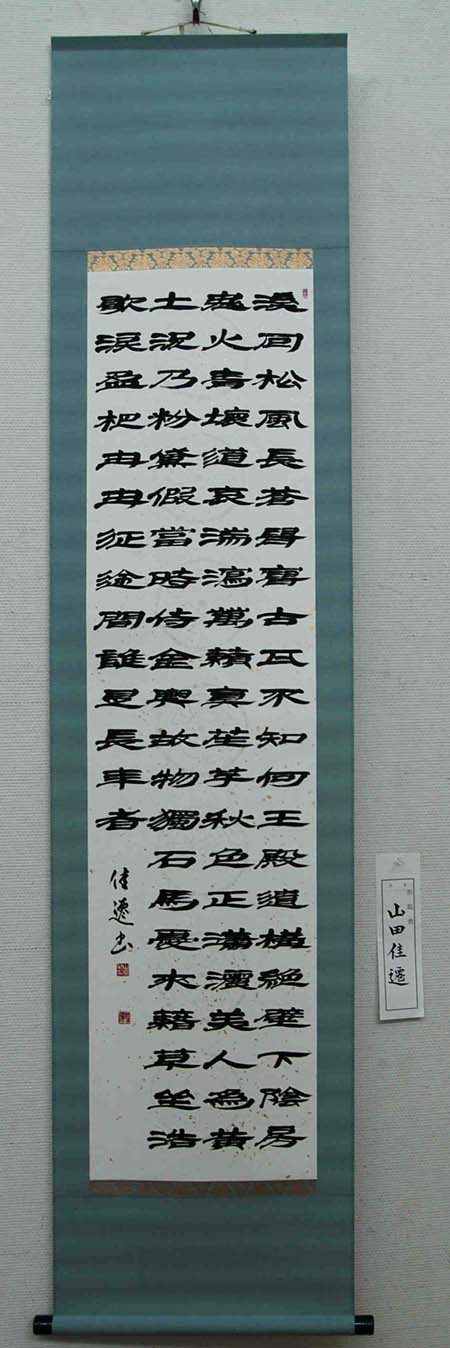 溪回松風長蒼鼠竄古瓦不知何王殿遺構絕壁下陰房
鬼火青壞道哀湍瀉萬籟真笙竽秋色正瀟灑美人為黃
土況乃粉黛假當時侍金輿故物獨石馬憂來藉草坐浩
歌淚盈把冉冉征途間誰是長年者
佳遷書
山田佳遷